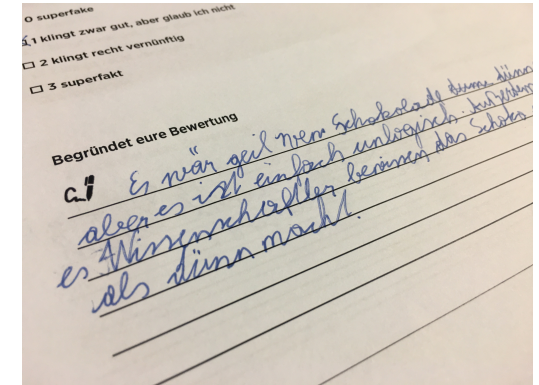 0 superfake
1 klingt zwar gut, aber glaub ich nicht
2 klingt recht vernünftig
3 superfakt
Begründet eure Bewertung
Es wär geil wen Schokolade
aber es ist einfach unlogisch. Außerdem
es Wissenschaftler das Schoko
als dünn macht.